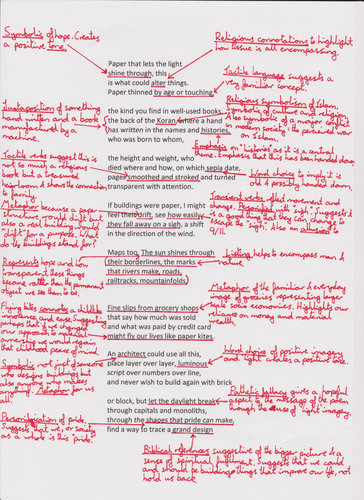 Symbolic of hope. Creates
a positive tone.
Religious connotations to highlight
how tissue is all encompassing.
Paper that lets the light
shine through, this
is what could alter things.
Paper thinned by age or touching,
Tactile language suggests a
very familiar concept.
Juxtaposition of something
hand written and a book
manufactured by a
machine.
the kind you find in well-used books,
the back of the Koran, where a hand
has written in the names and histories,
who was born to whom,
Religious symbolism of Islam.
Symbolic of culture and religion
Also symbolic of a major conflict
in modern society: the perceived war
on Islam.
Emphasis on 'histories' as it is a central
theme. Emphasis that this has been handed down
Tactile verbs suggest this is
not so much a religious
book but a treasured
heirloom. It shows the connection
to family.
the height and weight, who
died where and how, on which sepia date,
pages smoothed and stroked and turned
transparent with attention.
Word choice to imply it is
old & possibly handed down.
Metaphor because a paper
structure would drift but
also a real building would
"drift" for a purpose. What
do the buildings stand for?
If buildings were paper, I might
feel their drift, see how easily
they fall away on a sigh, a shift
in the direction of the wind.
Transient verbs reflect movement and
change. Personified with "sigh," suggests it
is a good thing that they can change to
escape the "sigh". Also an allusion to
9/11.
Represents hope and how
transparent these things
become rather than the permanent
object we see them to be.
Maps too. The sun shines through
their borderlines, the marks
that rivers make, roads,
railtracks, mountainfolds,
Listing helps to encompass man &
nature.
Flying kites connotes a childlike
innocence and ease. Suggests
perhaps that if we changed
our approach to material
wealth, we would regain
that childhood peace of mind
Fine slips from grocery shops
that say how much was sold
and what was paid by credit card
might fly our lives like paper kites.
Metaphor of the familiar & everyday
image of groceries representing larger
scale socio economics. Highlights our
reliance on money and material
wealth
Symbolic not just of someone
who designs buildings but
also anyone who makes
something. Metaphor for us
all.
An architect could use all this,
place layer over layer, luminous
script over numbers over line,
and never wish to build again with brick
Word choice of positive imagery
and light makes a positive tone.
Personification of pride.
Suggests that we, or society
as a whole is this "pride".
or block, but let the daylight break
through capitals and monoliths,
through the shapes that pride can make,
find a way to trace a grand design
Pathetic fallacy gives a hopeful
aspect to the message of the poem
through the use of "light" imagery.
Biblical references suggestive of the bigger picture & a
sense of spiritual fulfilment. Suggests that we could
and should be building things that improve our life, not
hold us back